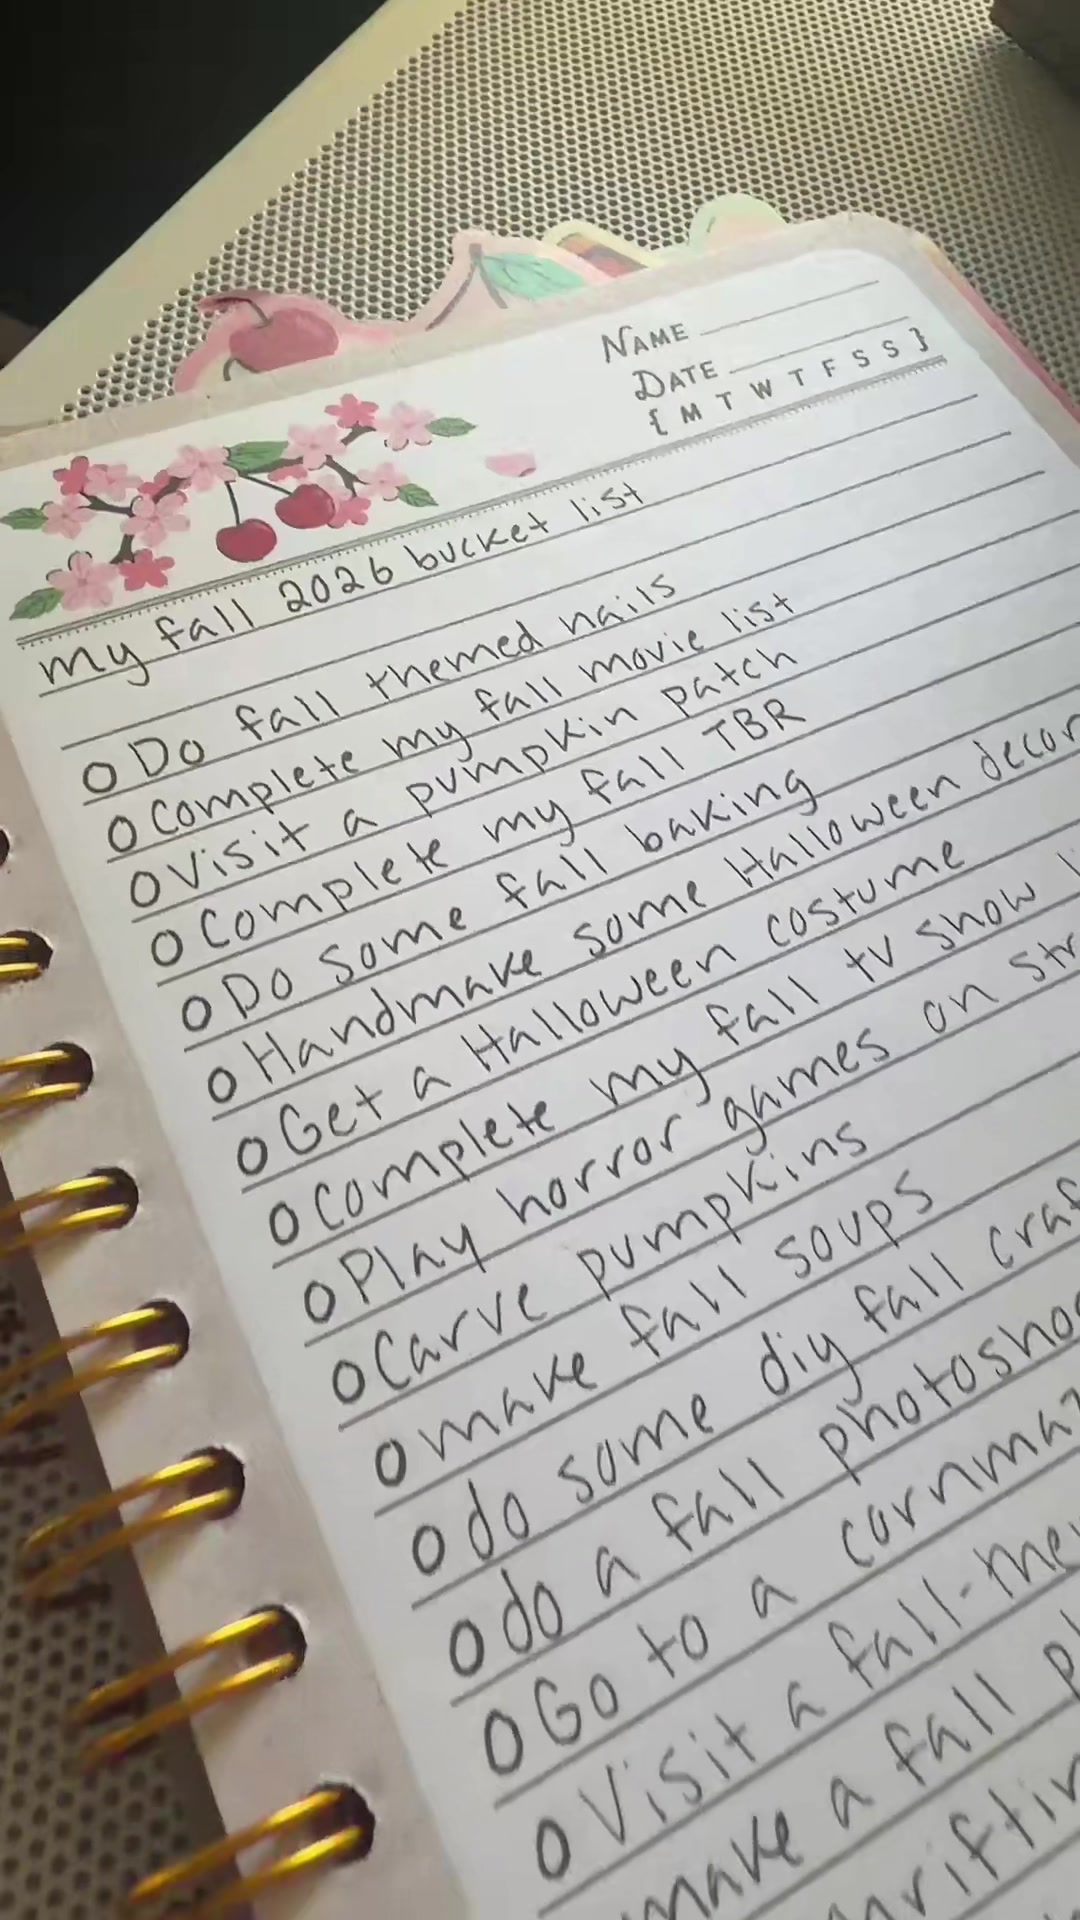 NAME
DATE
{ M T W T F S S }
my fall 2026 bucket list
O Do fall themed nails
O Complete my fall movie list
O Visit a pumpkin patch
O Complete my fall TBR
O Do some fall baking
O Handmake some Halloween decor
O Get a Halloween costume
O Complete my fall tv show
O Play horror games on
O Carve pumpkins
O make fall soups
O do some diy fall
O do a fall
O Go to a
O Visit a
make a fall